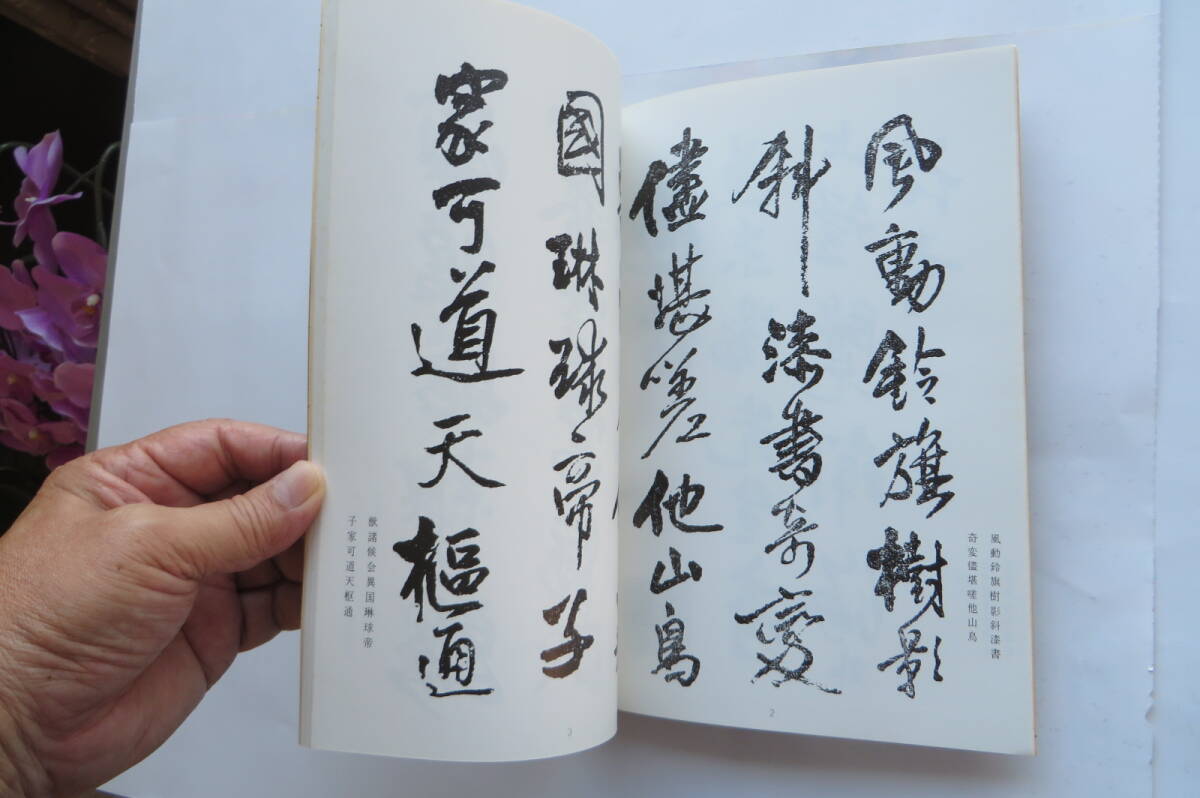 風動鈴旗樹影斜漆書
奇変儘堪嗟他山鳥
風動鈴旗樹影
斜漆書奇變
儘堪嗟他山鳥
2
國琳球帝子
家可道天樞通
獣諸候会異国琳球帝
子家可道天枢通
3